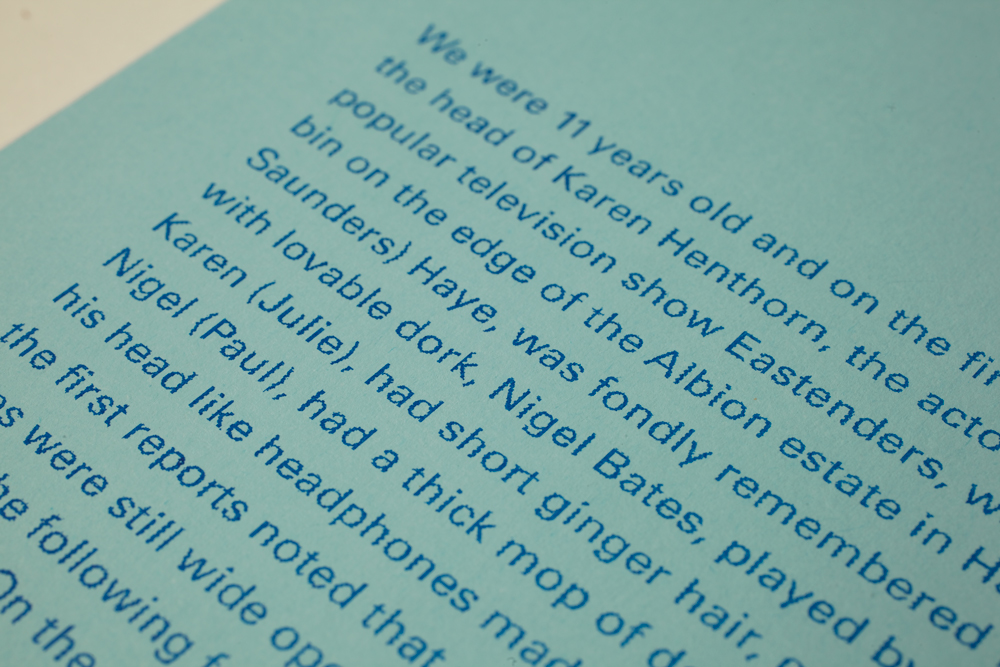 We were 11 years old and on the fir
the head of Karen Henthorn, the acto
popular television show Eastenders, w
bin on the edge of the Albion estate in H
Saunders) Haye, was fondly remembered
with lovable dork, Nigel Bates, played by
Karen (Julie), had short ginger hair,
Nigel (Paul), had a thick mop of d
his head like headphones mad
the first reports noted that
s were still wide ope
he following f
On the